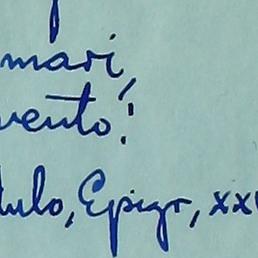 mari,
vento!
tulo, Epigr, xx